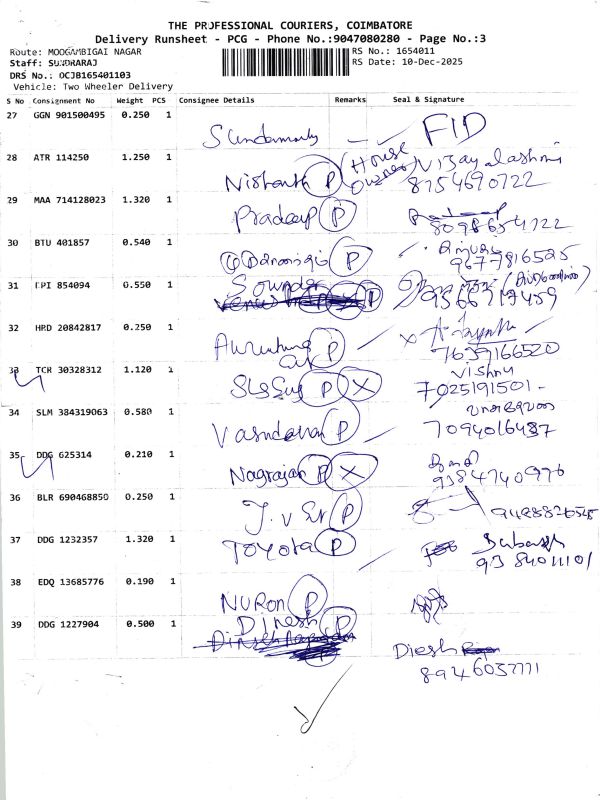 THE PROFESSIONAL COURIERS, COIMBATORE
Delivery Runsheet - PCG - Phone No.:9047080280 - Page No.:3
Route: MOOGAMBIGAI NAGAR RS No.: 1654011
Staff: SUNDRARAJ RS Date: 10-Dec-2025
DRS No.: OCJB165401103
Vehicle: Two Wheeler Delivery
S No Consignment No Weight PCS Consignee Details Remarks Seal & Signature
27 GGN 901500495 0.250 1 FID
28 ATR 114250 1.250 1 Nishanth P (House Owner) Vijayalashmi
8754690722
29 MAA 714128023 1.320 1 Pradeep P
8098654722
30 BTU 401857 0.540 1 P
9677816525
31 EPI 854094 0.550 1 Sounder P
32 HRD 20842817 0.250 1 P
7639166520
33 TCR 30328312 1.120 1 P X Vishnu
7025191501
34 SLM 384319063 0.580 1 P
7094016487
35 DDG 625314 0.210 1 Nagrajan P X
9384740976
36 BLR 690468850 0.250 1 P
37 DDG 1232357 1.320 1 TOYOTA P
38 EDQ 13685776 0.190 1 NURON P
39 DDG 1227904 0.500 1 Dinesh P